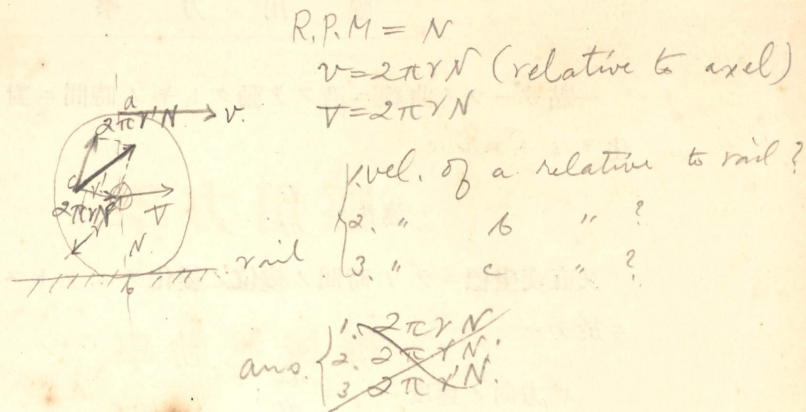 R.P.M = N
v=2πrN (relative to axel)
V=2πrN
a
2πr'N
v.
c
r'
2πrN
V
r
N
b
rail
1. vel. of a relative to rail?
2. " b " ?
3. " c " ?
ans. 1. 2πrN
2. 2πrN.
3 2πr'N.